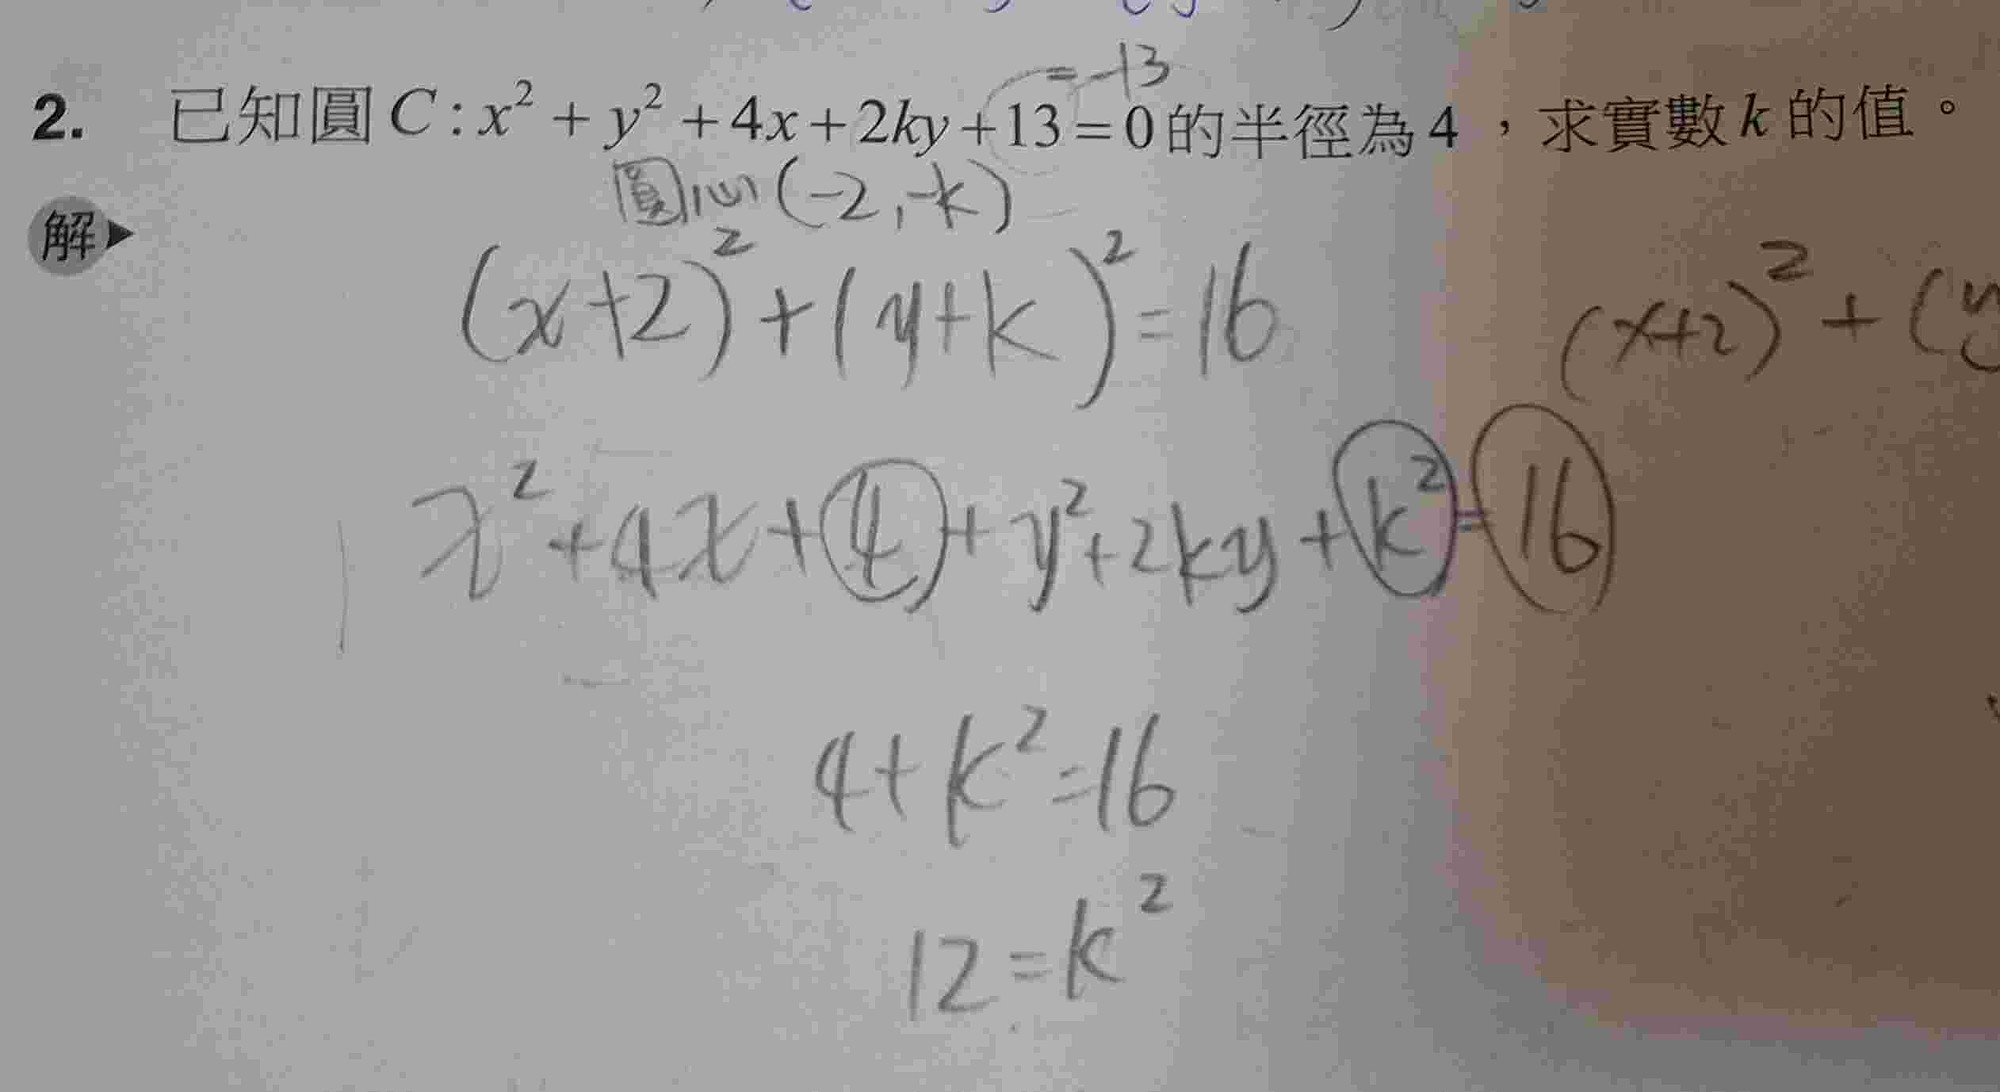 = -13
2. 已知圓 C : x² + y² + 4x + 2ky + 13 = 0 的半徑為 4 ，求實數 k 的值。
圓心 (-2, -k)
解▶
(x+2)² + (y+k)² = 16
(x+2)² + (y
x² + 4x + 4 + y² + 2ky + k² = 16
4 + k² = 16
12 = k²